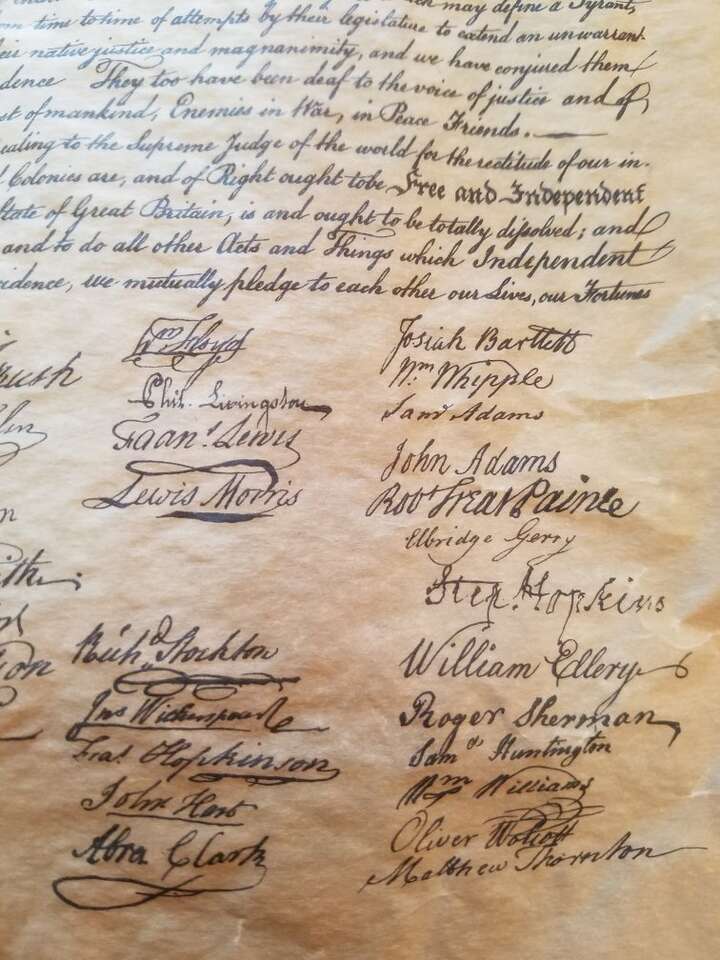 which may define a Tyrant,
time to time of attempts by their legislature to extend an unwarrant-
native justice and magnanimity, and we have conjured them
They too have been deaf to the voice of justice and of
of mankind, Enemies in War, in Peace Friends.
to the Supreme Judge of the world for the rectitude of our in-
Colonies are, and of Right ought to be Free and Independent
State of Great Britain, is and ought to be totally dissolved; and
and to do all other Acts and Things which Independent
we mutually pledge to each other our Lives, our Fortunes
Wm Floyd
Phil. Livingston
Frans. Lewis
Lewis Morris
Richd Stockton
Jno Witherspoon
Fras. Hopkinson
John Hart
Abra Clark
Josiah Bartlett
Wm. Whipple
Saml Adams
John Adams
Robt Treat Paine
Elbridge Gerry
Step. Hopkins
William Ellery
Roger Sherman
Samel Huntington
Wm Williams
Oliver Wolcott
Matthew Thornton